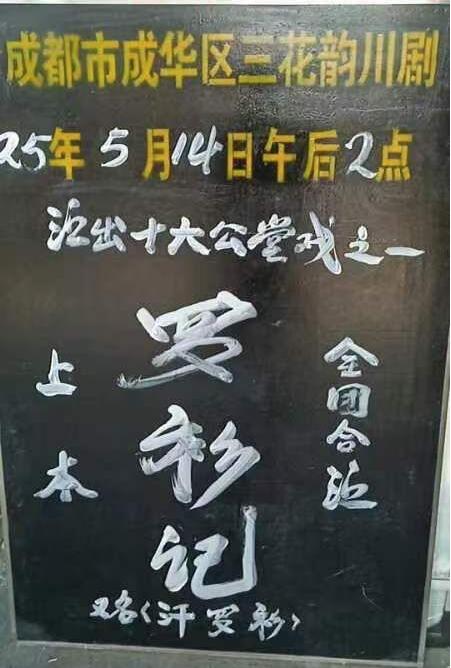 成都市成华区三花韵川剧
25年5月14日午后2点
演出十六公堂戏之一
上本
罗衫记
全团合演
又名《汗罗衫》